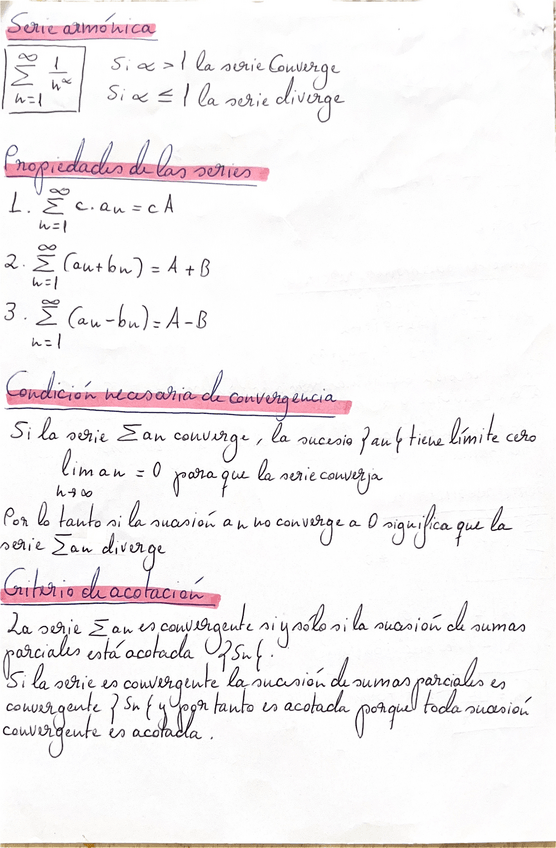 Serie armónica
∞
∑ 1/n^α Si α > 1 la serie Converge
n=1 Si α ≤ 1 la serie diverge
Propiedades de las series
1. ∞∑n=1 c·an = cA
2. ∞∑n=1 (an+bn) = A+B
3. ∞∑n=1 (an-bn) = A-B
Condición necesaria de convergencia
Si la serie ∑an converge, la sucesio }an{ tiene límite cero
lim an = 0 para que la serie converja
n→∞
Por lo tanto si la sucesión an no converge a 0 significa que la
serie ∑an diverge
Criterio de acotación
La serie ∑an es convergente si y sólo si la sucesión de sumas
parciales está acotada }Sn{.
Si la serie es convergente la sucesión de sumas parciales es
convergente }Sn{ y por tanto es acotada porque toda sucesión
convergente es acotada.